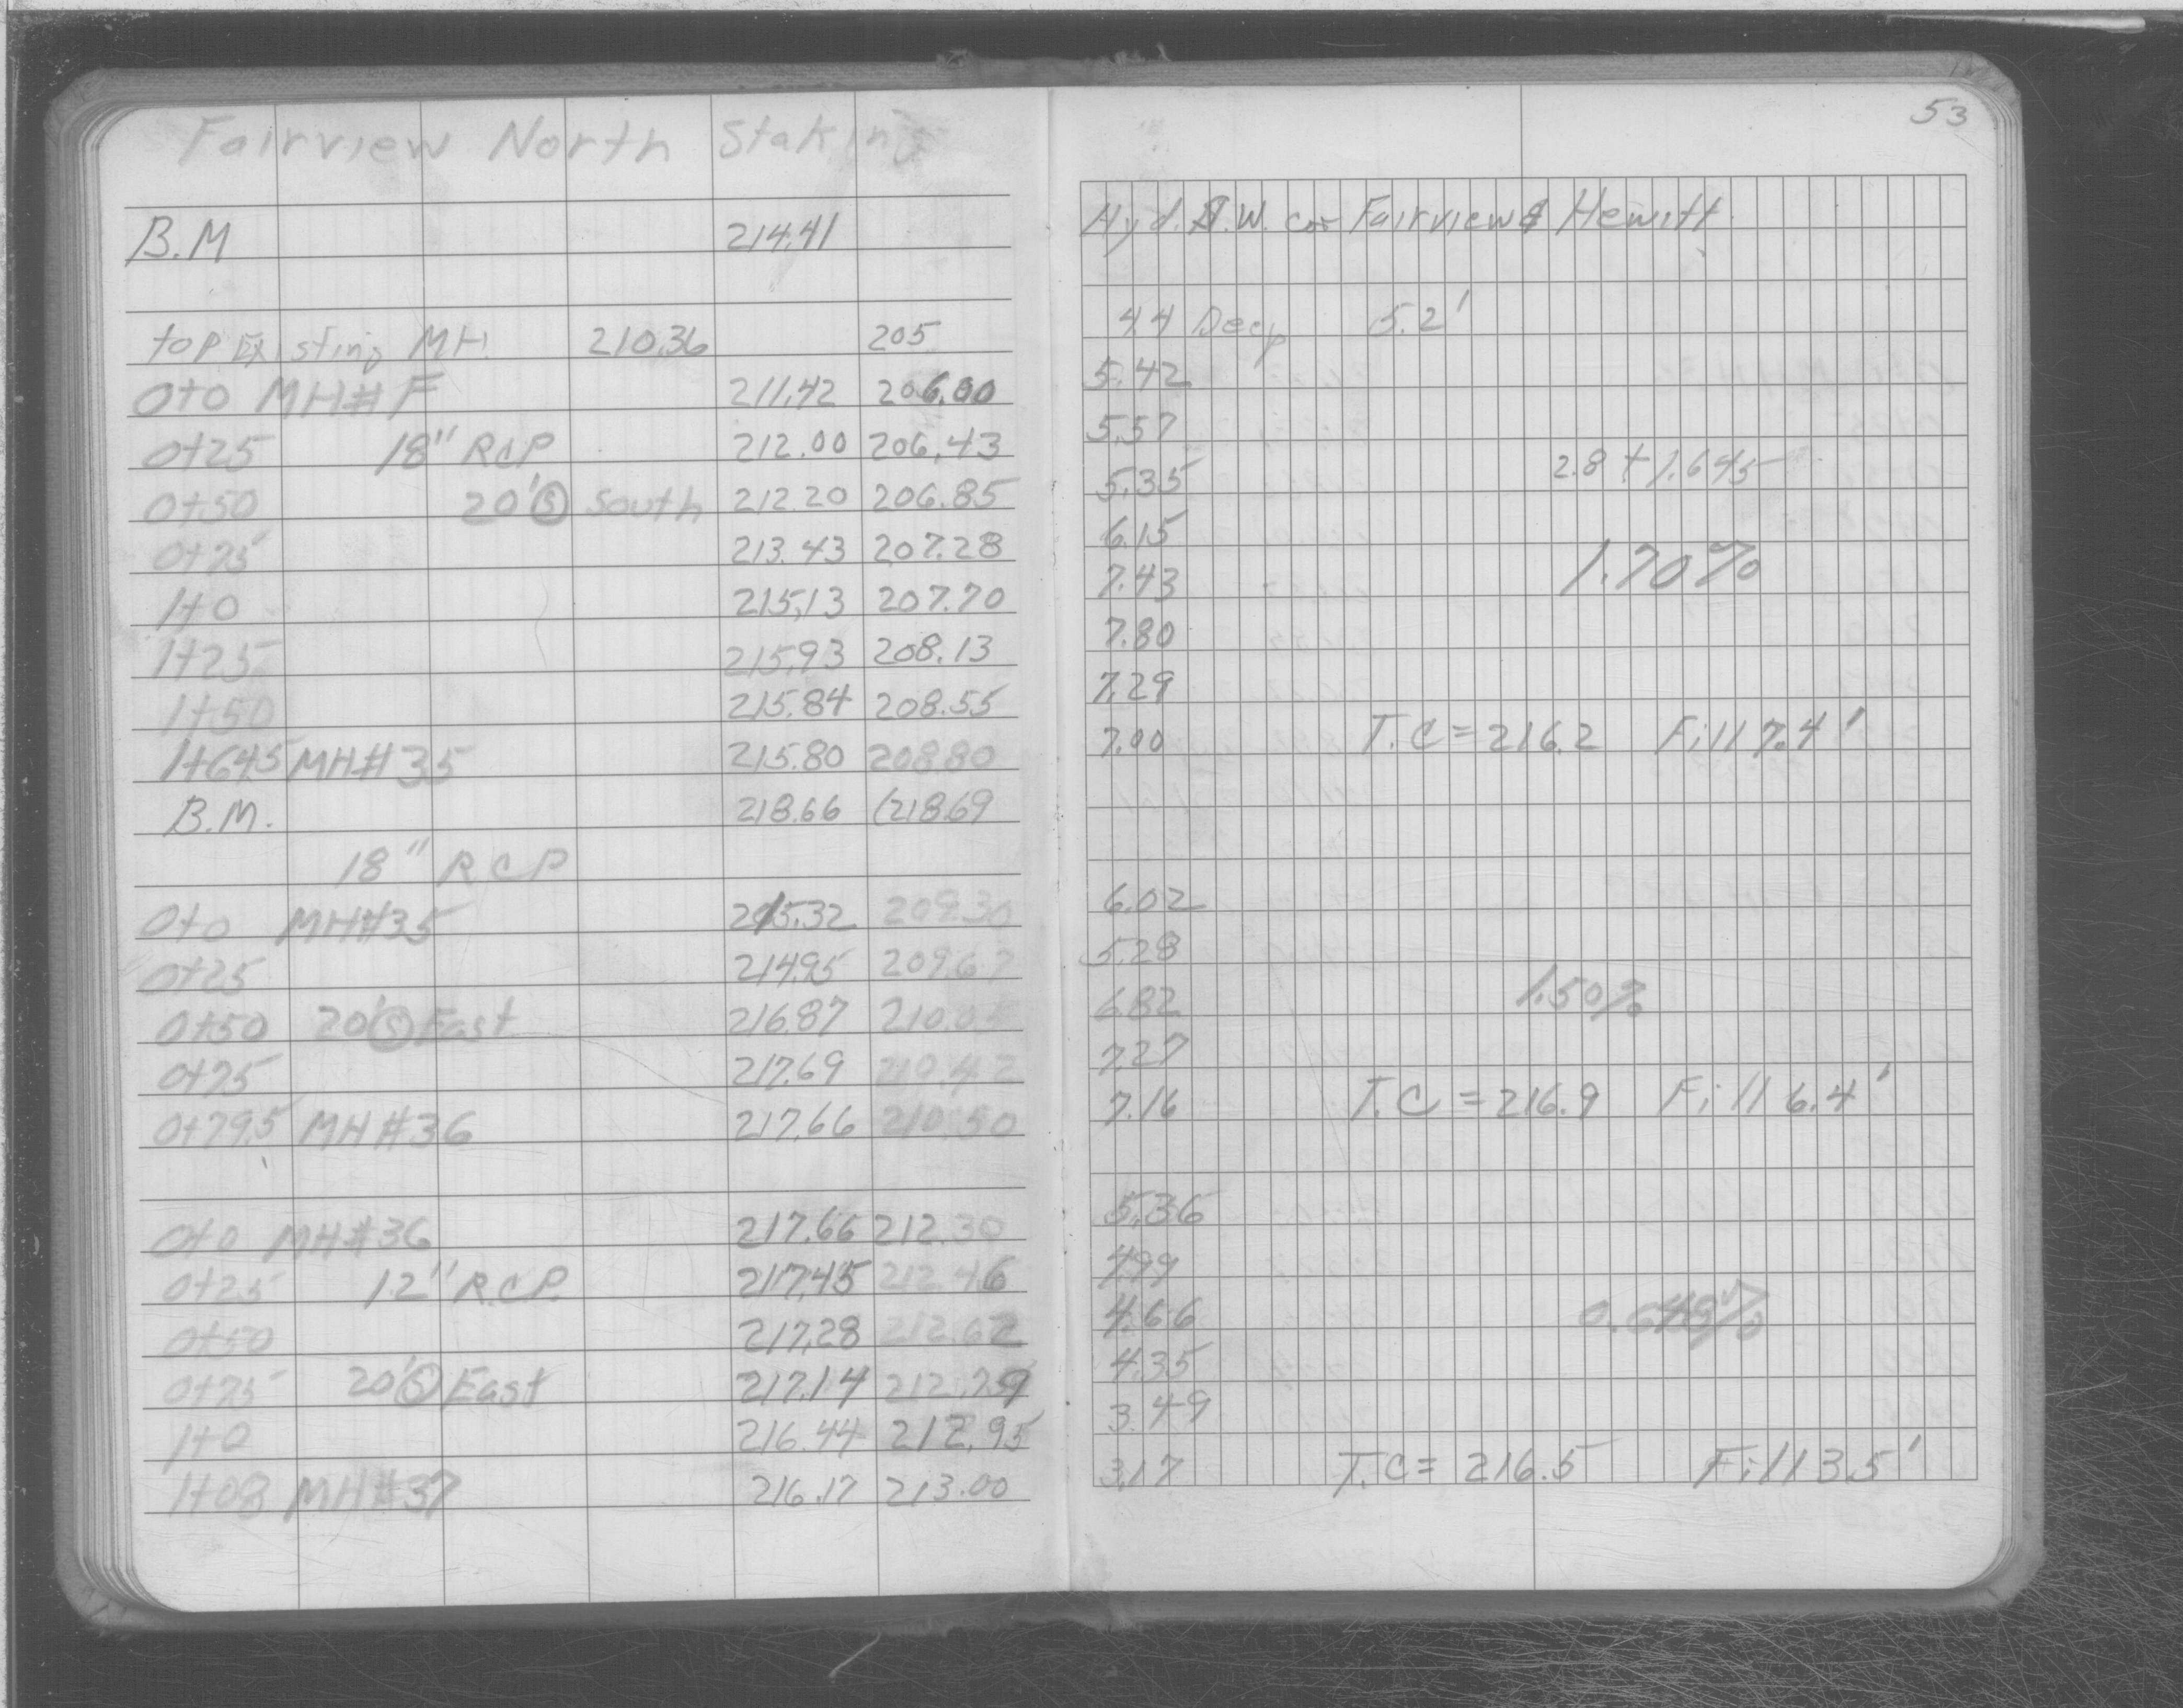 Fairview North Staking
B.M 214.41
top Existing MH. 210.36 205
0+0 MH#F 211.42 206.00
0+25 18" RCP 212.00 206.43
0+50 20' Ⓢ South 212.20 206.85
0+75 213.43 207.28
1+0 215.13 207.70
1+25 215.93 208.13
1+50 215.84 208.55
1+64.5 MH#35 215.80 208.80
B.M. 218.66 (218.69
18" RCP
0+0 MH#35 215.32 209.30
0+25 214.95 209.67
0+50 20' Ⓢ East 216.87 210.05
0+75 217.69 210.42
0+79.5 MH#36 217.66 210.50
0+0 MH#36 217.66 212.30
0+25 12" R.C.P. 217.45 212.46
0+50 217.28 212.62
0+75 20' Ⓢ East 217.14 212.79
1+0 216.44 212.95
1+08 MH#37 216.17 213.00
53
Hyd. W. cor Fairview & Hewitt
4.4 Deep 5.2'
5.42
5.57
5.35 2.8 ÷ 1.645
6.15
7.43 1.70%
7.80
7.29
7.00 T.C = 216.2 Fill 7.4'
6.02
5.28
6.82 1.50%
7.27
7.16 T.C = 216.9 Fill 6.4'
5.36
4.99
4.66
4.35
3.49
3.17 T.C = 216.5 Fill 3.5'